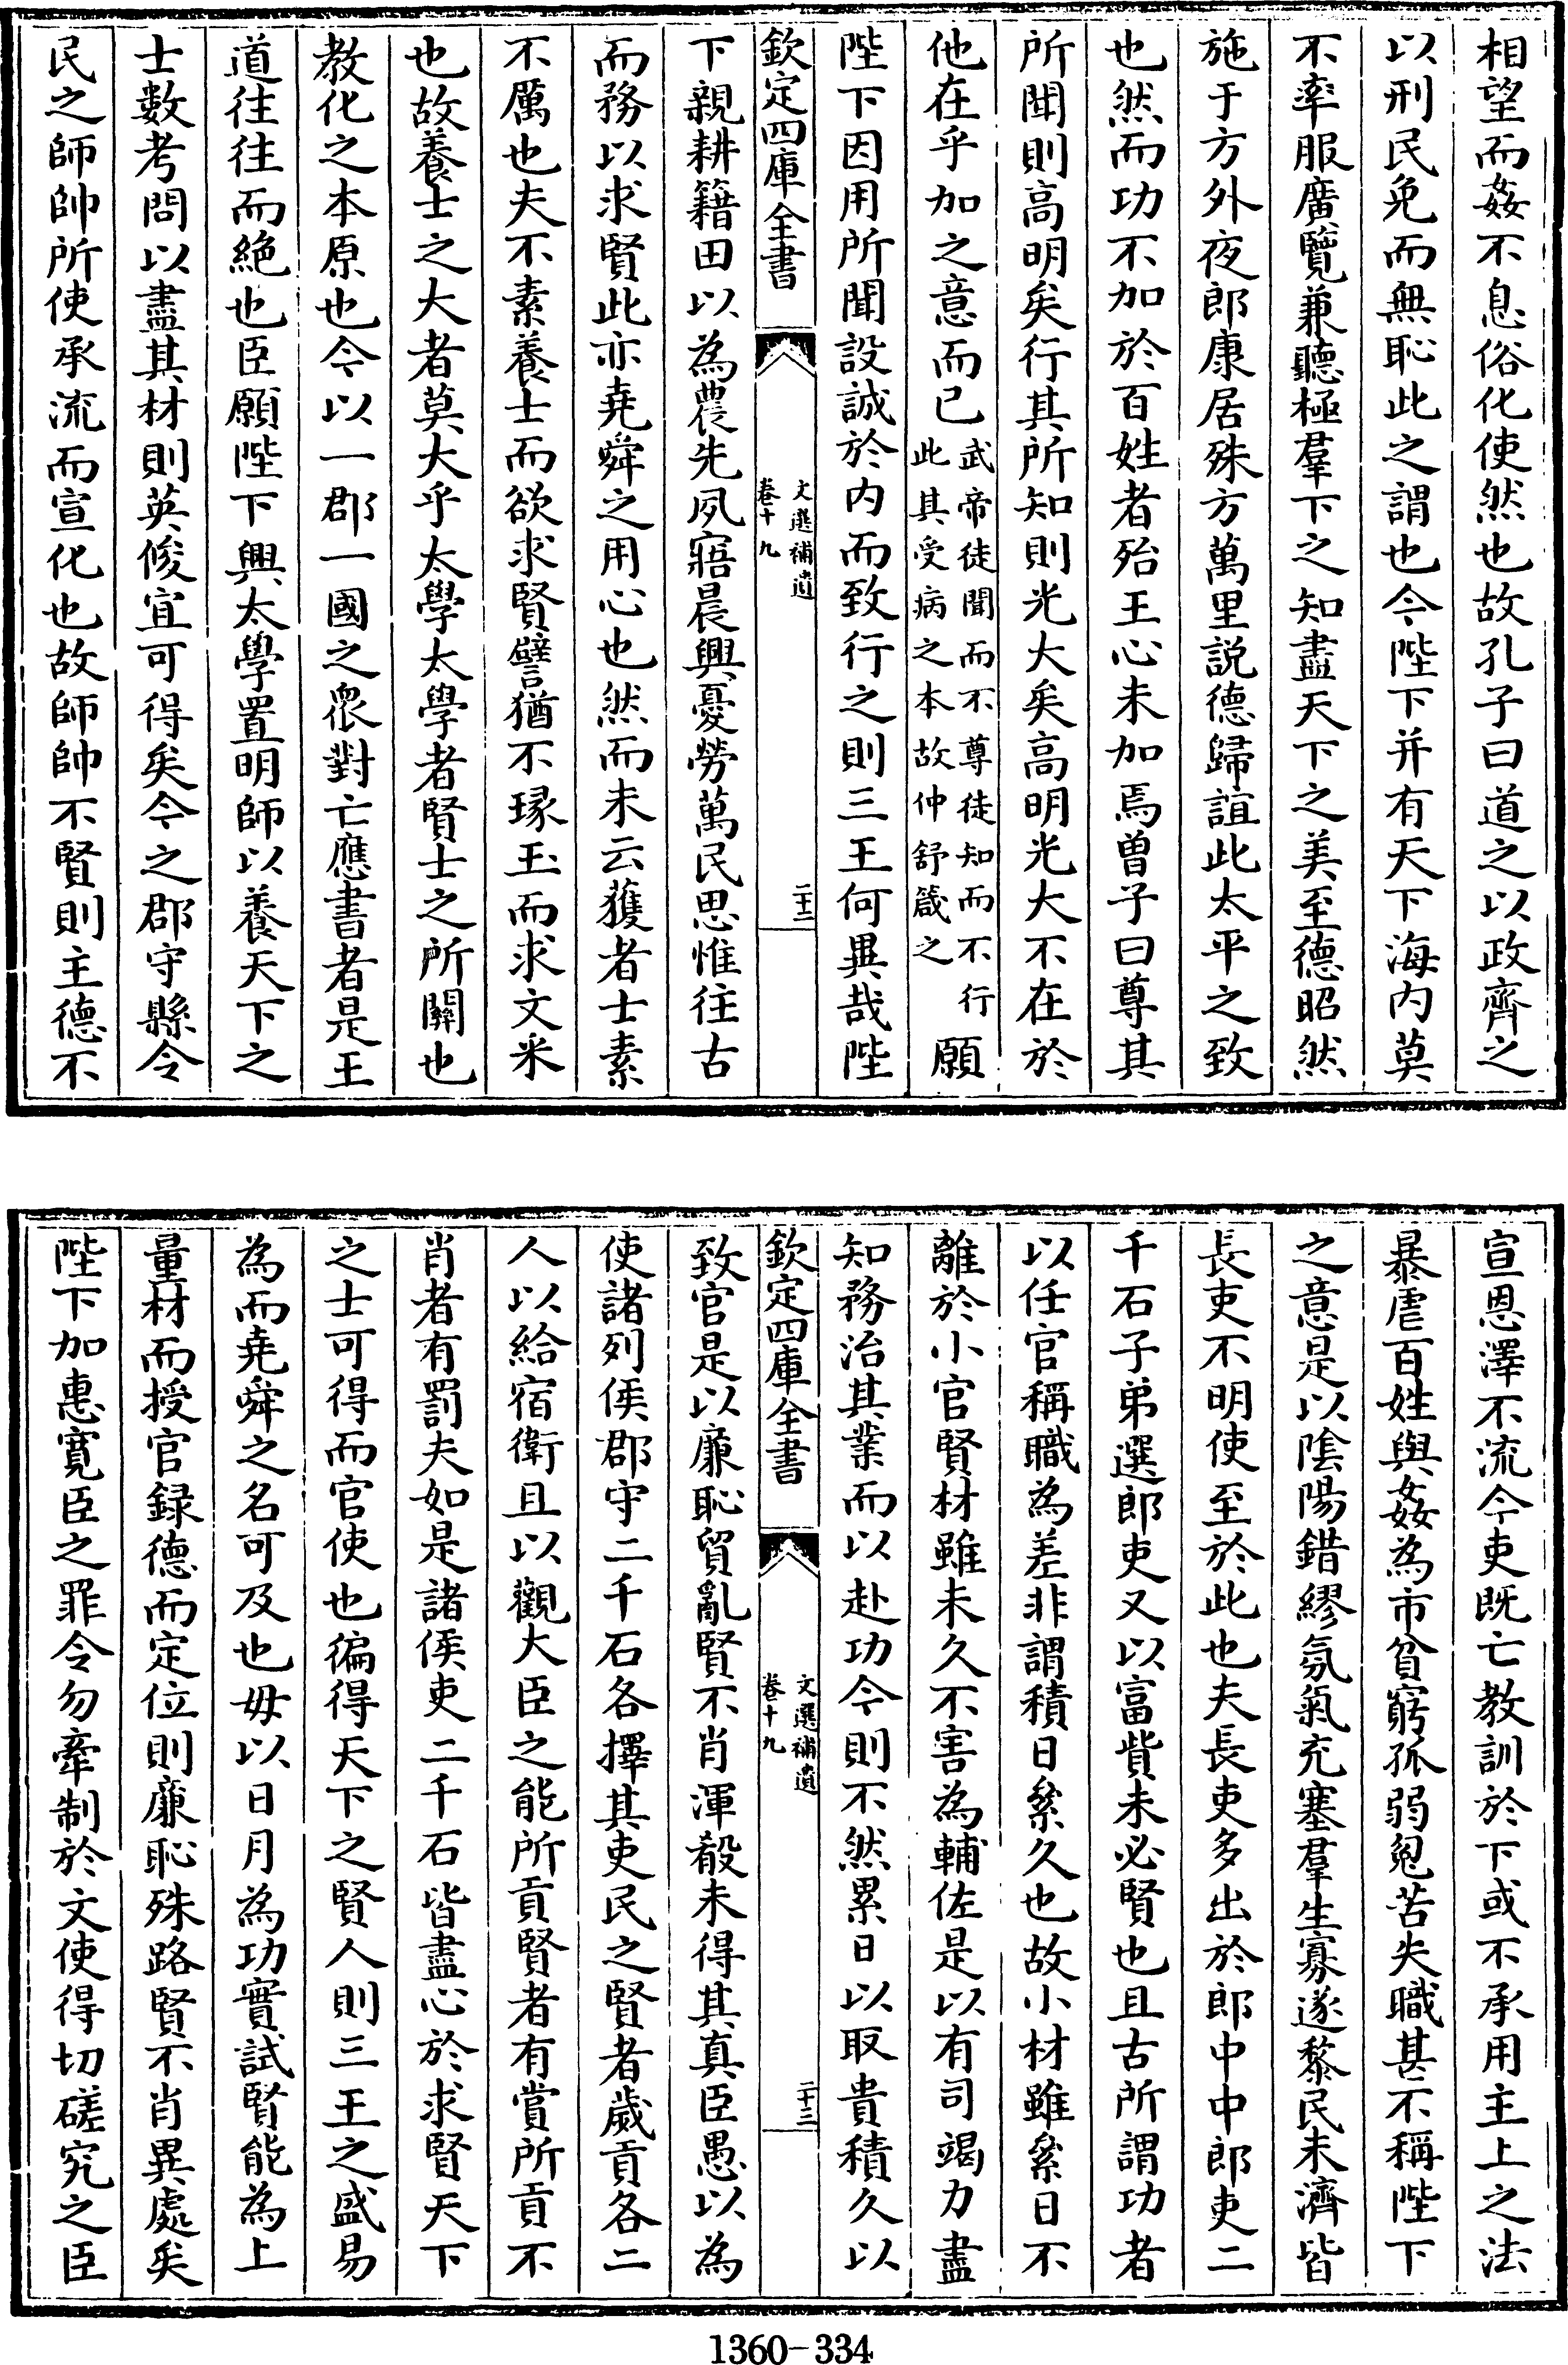 相望而姦不息俗化使然也故孔子曰道之以政齊之
以刑民免而無恥此之謂也今陛下并有天下海内莫
不率服廣覽兼聽極羣下之知盡天下之美至德昭然
施于方外夜郎康居殊方萬里說德歸誼此太平之致
也然而功不加於百姓者殆王心未加焉曽子曰尊其
所聞則高明矣行其所知則光大矣高明光大不在於
他在乎加之意而已武帝徒聞而不尊徒知而不行此其受病之本故仲舒箴之願
陛下因用所聞設誠於内而致行之則三王何異哉陛
欽定四庫全書
文選補遺
卷十九
二十二
下親耕籍田以為農先夙寤晨興憂勞萬民思惟往古
而務以求賢此亦堯舜之用心也然而未云獲者士素
不厲也夫不素養士而欲求賢譬猶不瑑玉而求文米
也故養士之大者莫大乎太學太學者賢士之所關也
教化之本原也今以一郡一國之衆對亡應書者是王
道往往而絶也臣願陛下興太學置明師以養天下之
士數考問以盡其材則英俊宜可得矣今之郡守縣令
民之師帥所使承流而宣化也故師帥不賢則主德不
宣恩澤不流今吏既亡教訓於下或不承用主上之法
暴虐百姓與姦為市貧窮孤弱寃苦失職甚不稱陛下
之意是以隂陽錯繆氛氣充塞羣生寡遂黎民未濟皆
長吏不明使至於此也夫長吏多出於郎中中郎吏二
千石子弟選郎吏又以富貲未必賢也且古所謂功者
以任官稱職為差非謂積日絫久也故小材雖絫日不
離於小官賢材雖未久不害為輔佐是以有司竭力盡
知務治其業而以赴功今則不然累日以取貴積久以
欽定四庫全書
文選補遺
卷十九
二十三
致官是以廉恥貿亂賢不肖渾殽未得其真臣愚以為
使諸列侯郡守二千石各擇其吏民之賢者歲貢各二
人以給宿衛且以觀大臣之能所貢賢者有賞所貢不
肖者有罰夫如是諸侯吏二千石皆盡心於求賢天下
之士可得而官使也徧得天下之賢人則三王之盛易
為而堯舜之名可及也毋以日月為功實試賢能為上
量材而授官録德而定位則廉恥殊路賢不肖異處矣
陛下加惠寛臣之罪令勿牽制於文使得切磋究之臣
1360-334